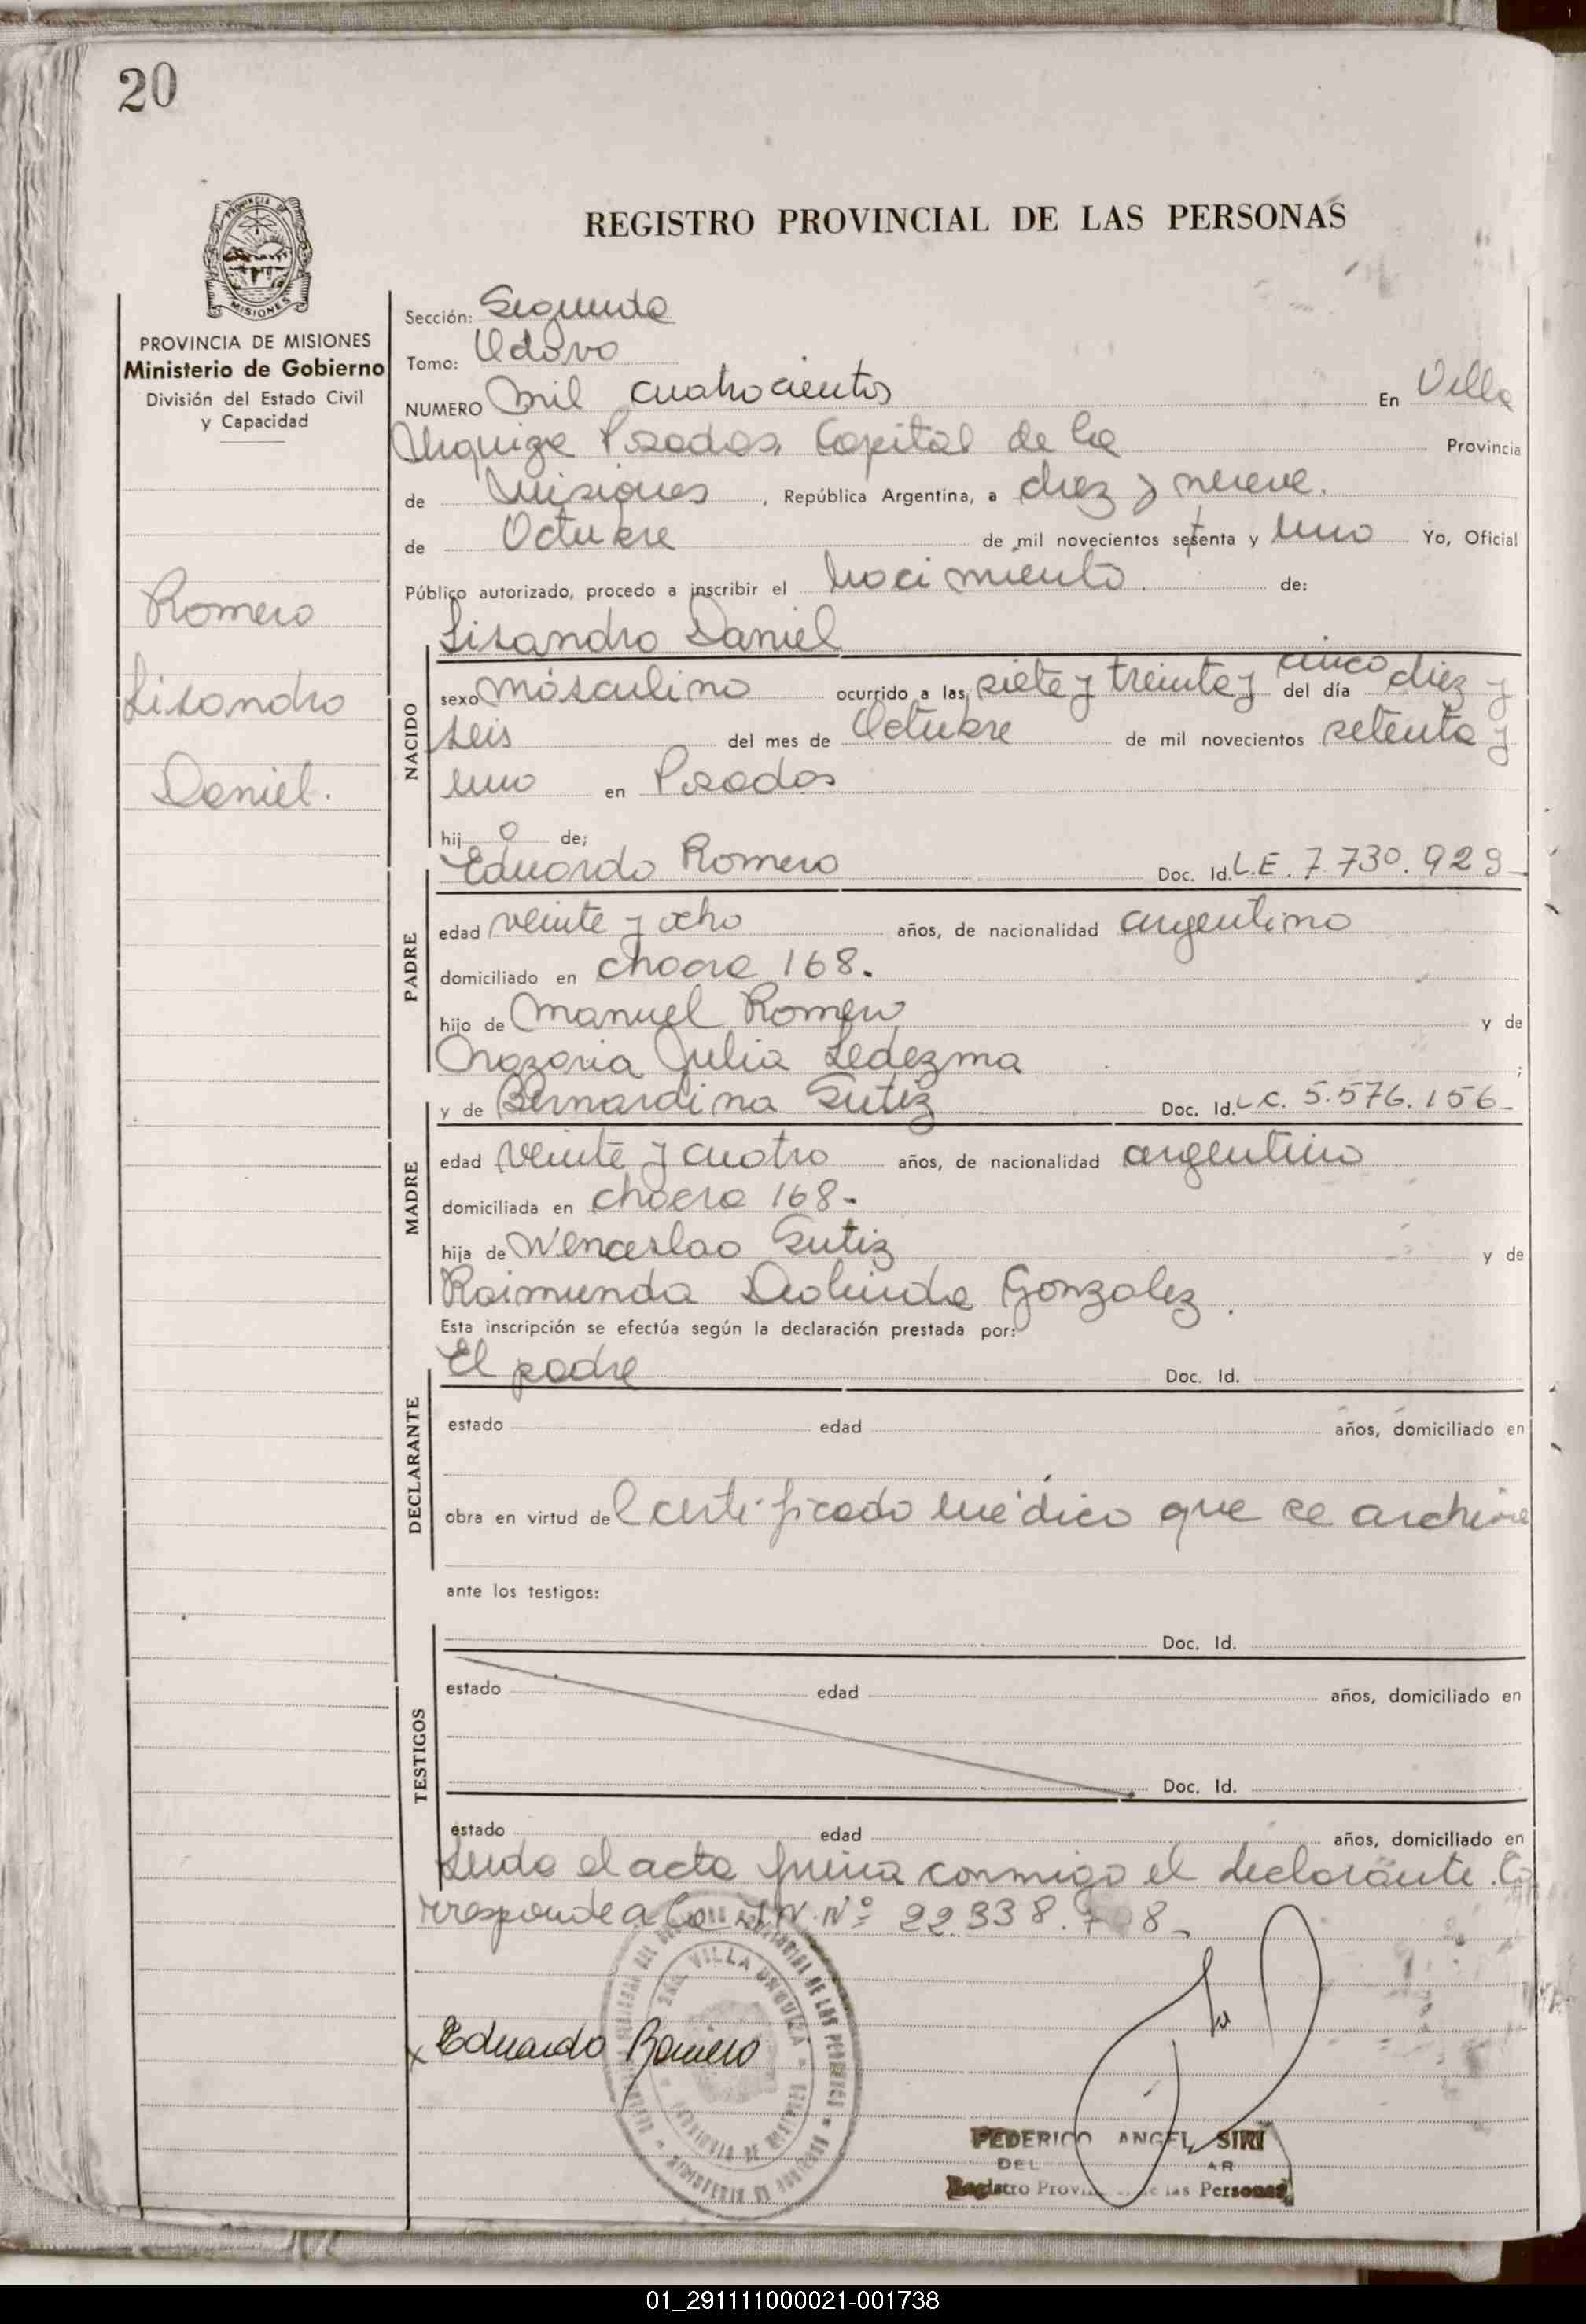 20
PROVINCIA DE
MISIONES
REGISTRO PROVINCIAL DE LAS PERSONAS
PROVINCIA DE MISIONES
Ministerio de Gobierno
División del Estado Civil
y Capacidad
Romero
Lisandro
Daniel.
Sección: Segunda
Tomo: Octavo
NUMERO mil cuatrocientos En Villa
Urquiza Posadas, Capital de la Provincia
de Misiones, República Argentina, a diez y nueve.
de Octubre de mil novecientos setenta y uno Yo, Oficial
Público autorizado, procedo a inscribir el nacimiento. de:
Lisandro Daniel
NACIDO
sexo masculino ocurrido a las siete y treinta y cinco del día diez y
seis del mes de Octubre de mil novecientos setenta y
uno en Posadas
hij o de;
Eduardo Romero Doc. Id. L.E. 7.730.929
PADRE
edad veinte y ocho años, de nacionalidad argentino
domiciliado en chacra 168.
hijo de Manuel Romero y de
Julia Ledezma ;
y de Bernardina Gutiz Doc. Id. L.C. 5.576.156
MADRE
edad veinte y cuatro años, de nacionalidad argentino
domiciliada en chacra 168-
hija de Wenceslao Gutiz y de
Raimunda Deolinda Gonzalez.
Esta inscripción se efectúa según la declaración prestada por:
El padre Doc. Id.
DECLARANTE
estado edad años, domiciliado en
obra en virtud del certificado médico que se archiva
ante los testigos:
Doc. Id.
TESTIGOS
estado edad años, domiciliado en
Doc. Id.
estado edad años, domiciliado en
Leida el acta firma conmigo el declarante. Co
rresponde a la N.Nº 22.338.
Eduardo Romero
VILLA URQUIZA
PROVINCIA DE MISIONES
MINISTERIO DE GOBIERNO
FEDERICO ANGEL SIRI
Registro Provincial de las Personas
01_291111000021-001738